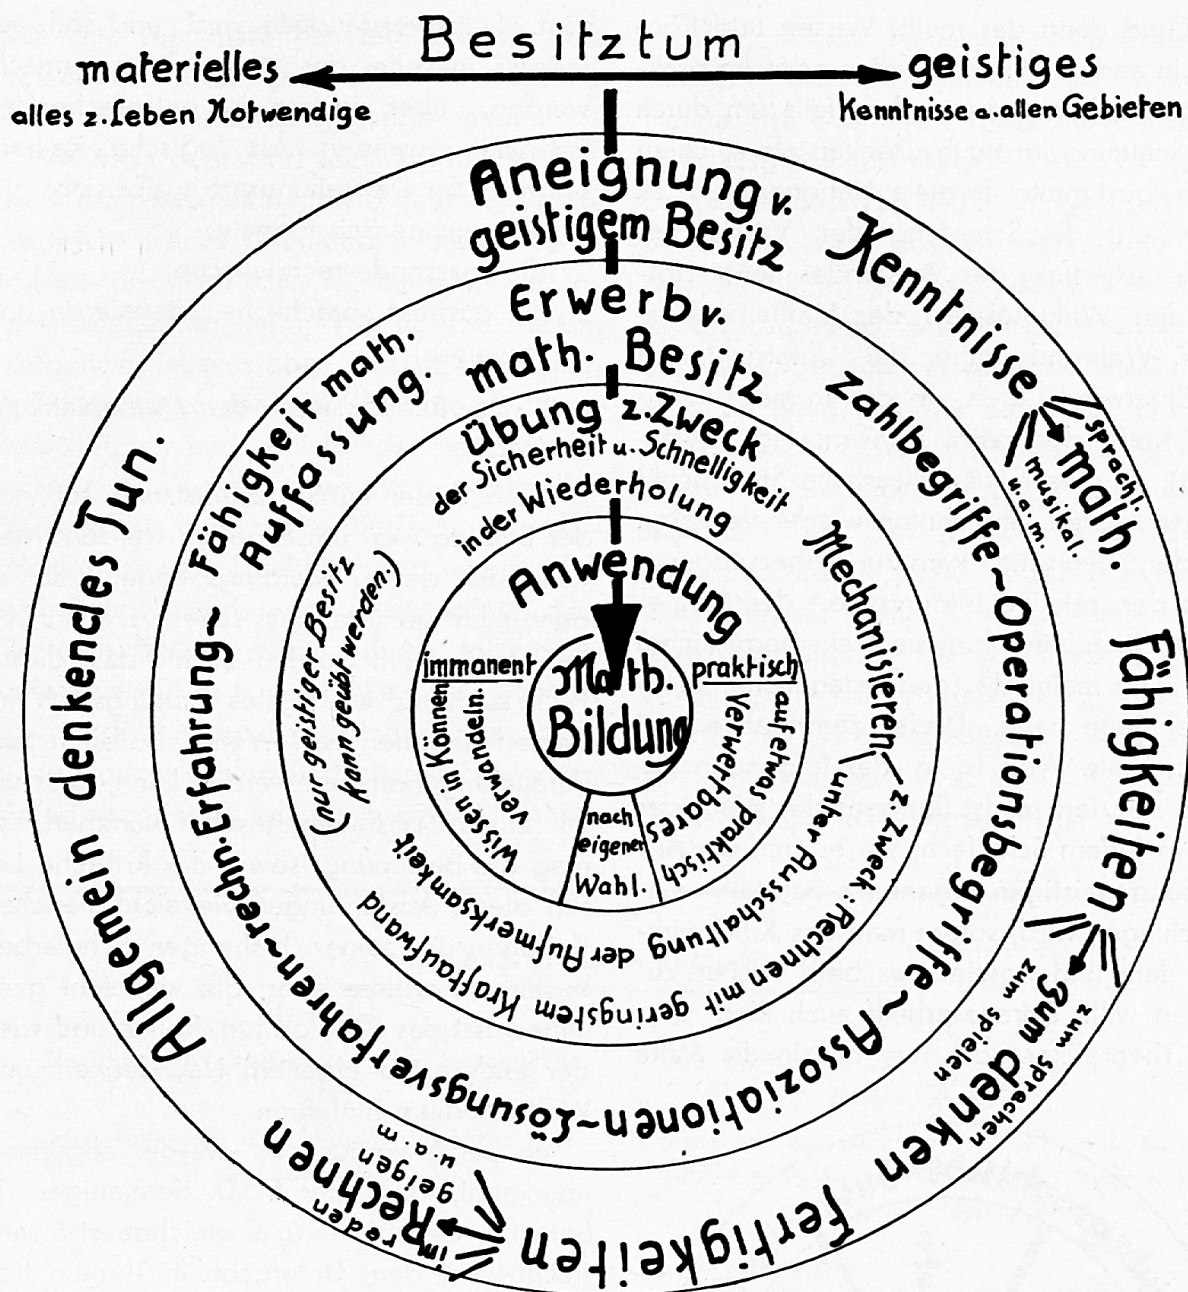 Besitztum
materielles
geistiges
alles z. Leben Notwendige
Kenntnisse a. allen Gebieten
Aneignung v.
geistigem Besitz
Kenntnisse
sprachl.
math.
musikal.
u.a.m.
Fähigkeiten
zum sprechen
zum denken
zum spielen
Fertigkeiten
im reden
Rechnen
geigen
u.a.m.
Allgemein denkendes Tun.
Erwerb v.
math. Besitz
Zahlbegriffe ~ Operationsbegriffe ~ Assoziationen ~ Lösungsverfahren ~ rechn. Erfahrung ~ Fähigkeit math.
Auffassung.
Übung z. Zweck
der Sicherheit u. Schnelligkeit
in der Wiederholung
Mechanisieren, z. Zweck: Rechnen mit geringstem Kraftaufwand
(unter Ausschaltung der Aufmerksamkeit
(nur geistiger Besitz
kann geübt werden.)
Anwendung
immanent
Wissen in Können
verwandeln.
praktisch
auf etwas praktisch
Verwertbares
nach
eigener
Wahl.
Math.
Bildung